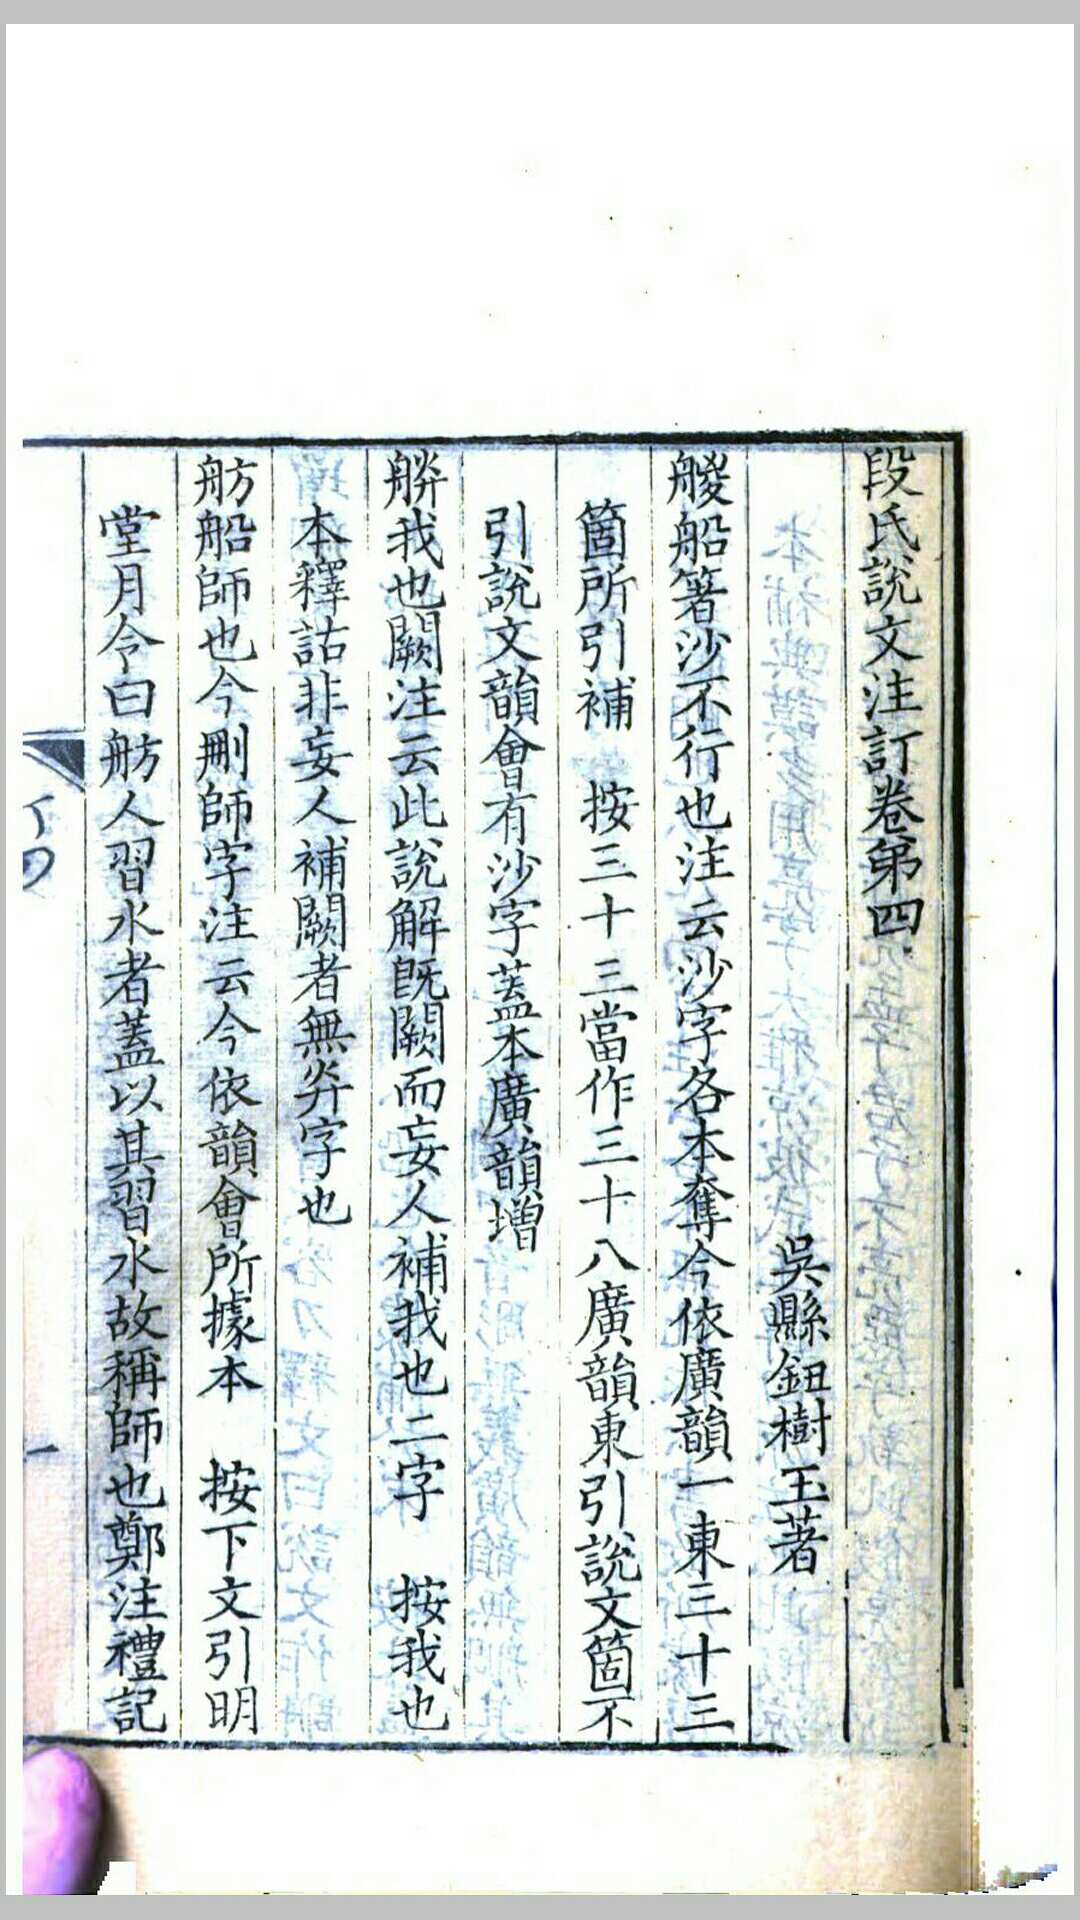 段氏說文注訂卷第四
吳縣鈕樹玉著
艐船箸沙不行也注云沙字各本奪今依廣韻一東三十三
箇所引補　按三十三當作三十八廣韻東引說文箇不
引說文韻會有沙字蓋本廣韻增
我也闕注云此說解旣闕而妄人補我也二字　按我也
本釋詁非妄人補闕者無灷字也
舫船師也今刪師字注云今依韻會所據本　按下文引明
堂月令曰舫人習水者蓋以其習水故稱師也鄭注禮記